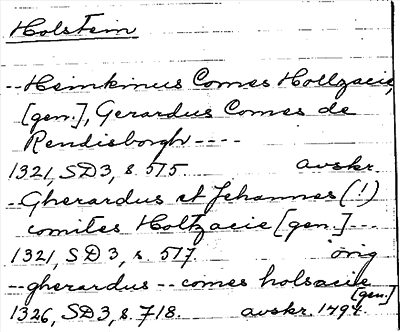 Holstein
-- Heinkinus Comes Holtzacie,
[gen.], Gerardus Comes de
Rendisborgh ----
1321, SD3, s. 575. avskr.
- Gherardus et Jehannes (!)
comites Holtzacie [gen.] ---
1321, SD3, s. 517. orig
-- gherardus -- comes holsacie [gen.]
1326, SD3, s. 718. avskr. 1494.